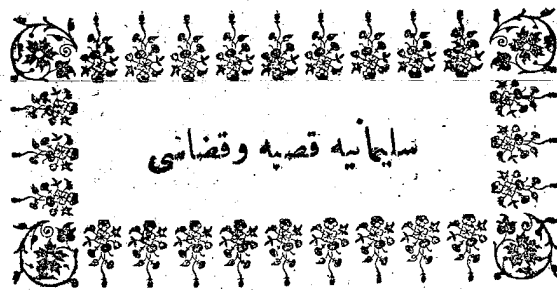 سلیمانیه قصبه وقضاسی